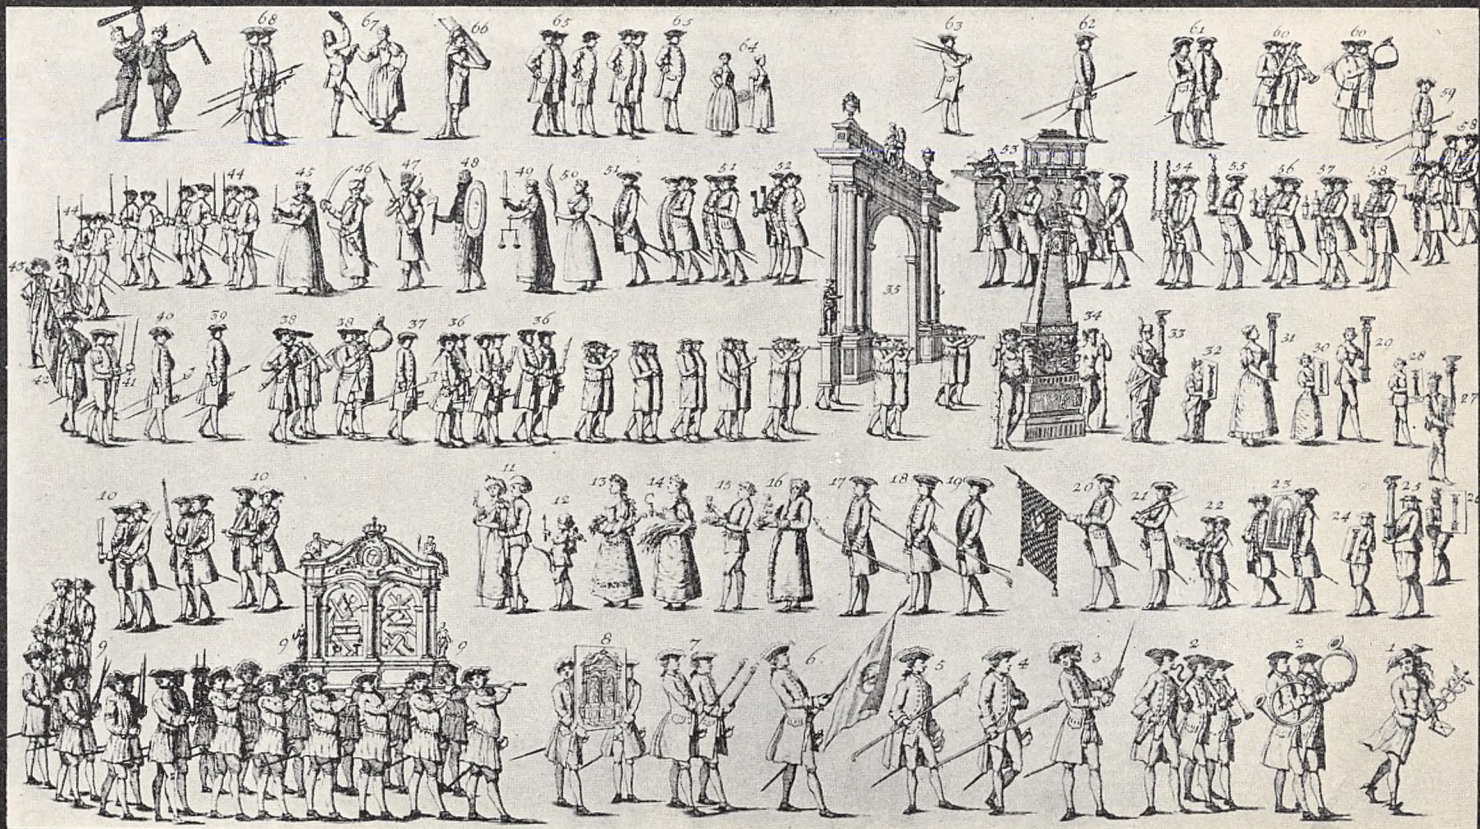 68 67 66 65 65 64 63 62 61 60 60 59
58
44 45 46 47 48 49 50 51 51 52 53 54 55 56 57 58
44
43
35
42 41 40 39 38 38 37 36 36 34 33 32 31 30 29 28
27
10 10 11 12 13 14 15 16 17 18 19 20 21 22 23 24 25
9 9 9 8 7 6 5 4 3 2 2 1